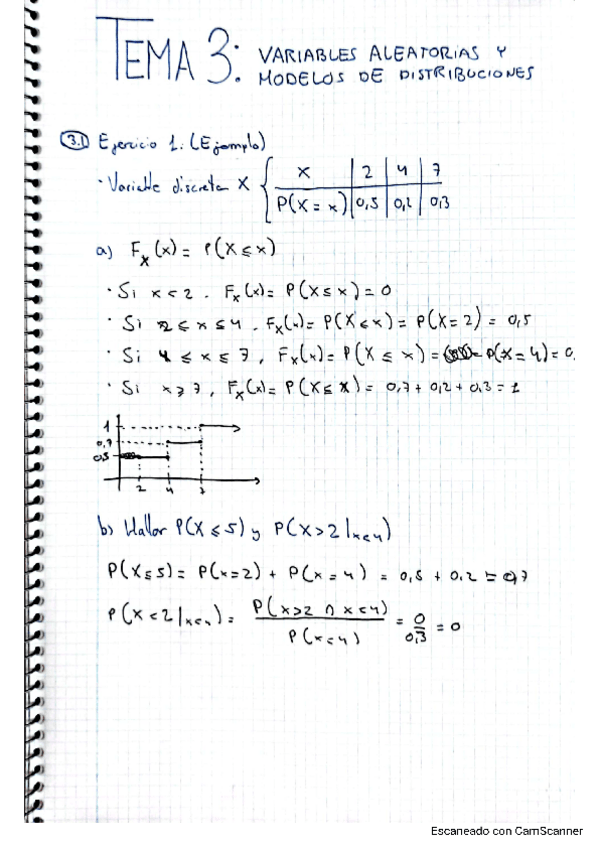 TEMA 3: VARIABLES ALEATORIAS Y
MODELOS DE DISTRIBUCIONES
3.1 Ejercicio 1. (Ejemplo)
· Variable discreta X { x | 2 | 4 | 7
P(X = x) | 0,5 | 0,2 | 0,3
a) F_X (x) = P(X ≤ x)
· Si x < 2 . F_X (x) = P(X ≤ x) = 0
· Si 2 ≤ x ≤ 4 . F_X (x) = P(X ≤ x) = P(X = 2) = 0,5
· Si 4 ≤ x ≤ 7 , F_X (x) = P(X ≤ x) = P(X = 4) = 0.
· Si x ≥ 7 , F_X (x) = P(X ≤ x) = 0,7 + 0,2 + 0,3 = 1
1
0,7
0,5
2 4 7
b) Hallar P(X ≤ 5) y P(X > 2 | x < 4)
P(X ≤ 5) = P(x = 2) + P(x = 4) = 0,5 + 0,2 = 0,7
P(X < 2 | x < 4) = P(x > 2 ∩ x < 4) / P(x < 4) = 0 / 0,3 = 0
Escaneado con CamScanner